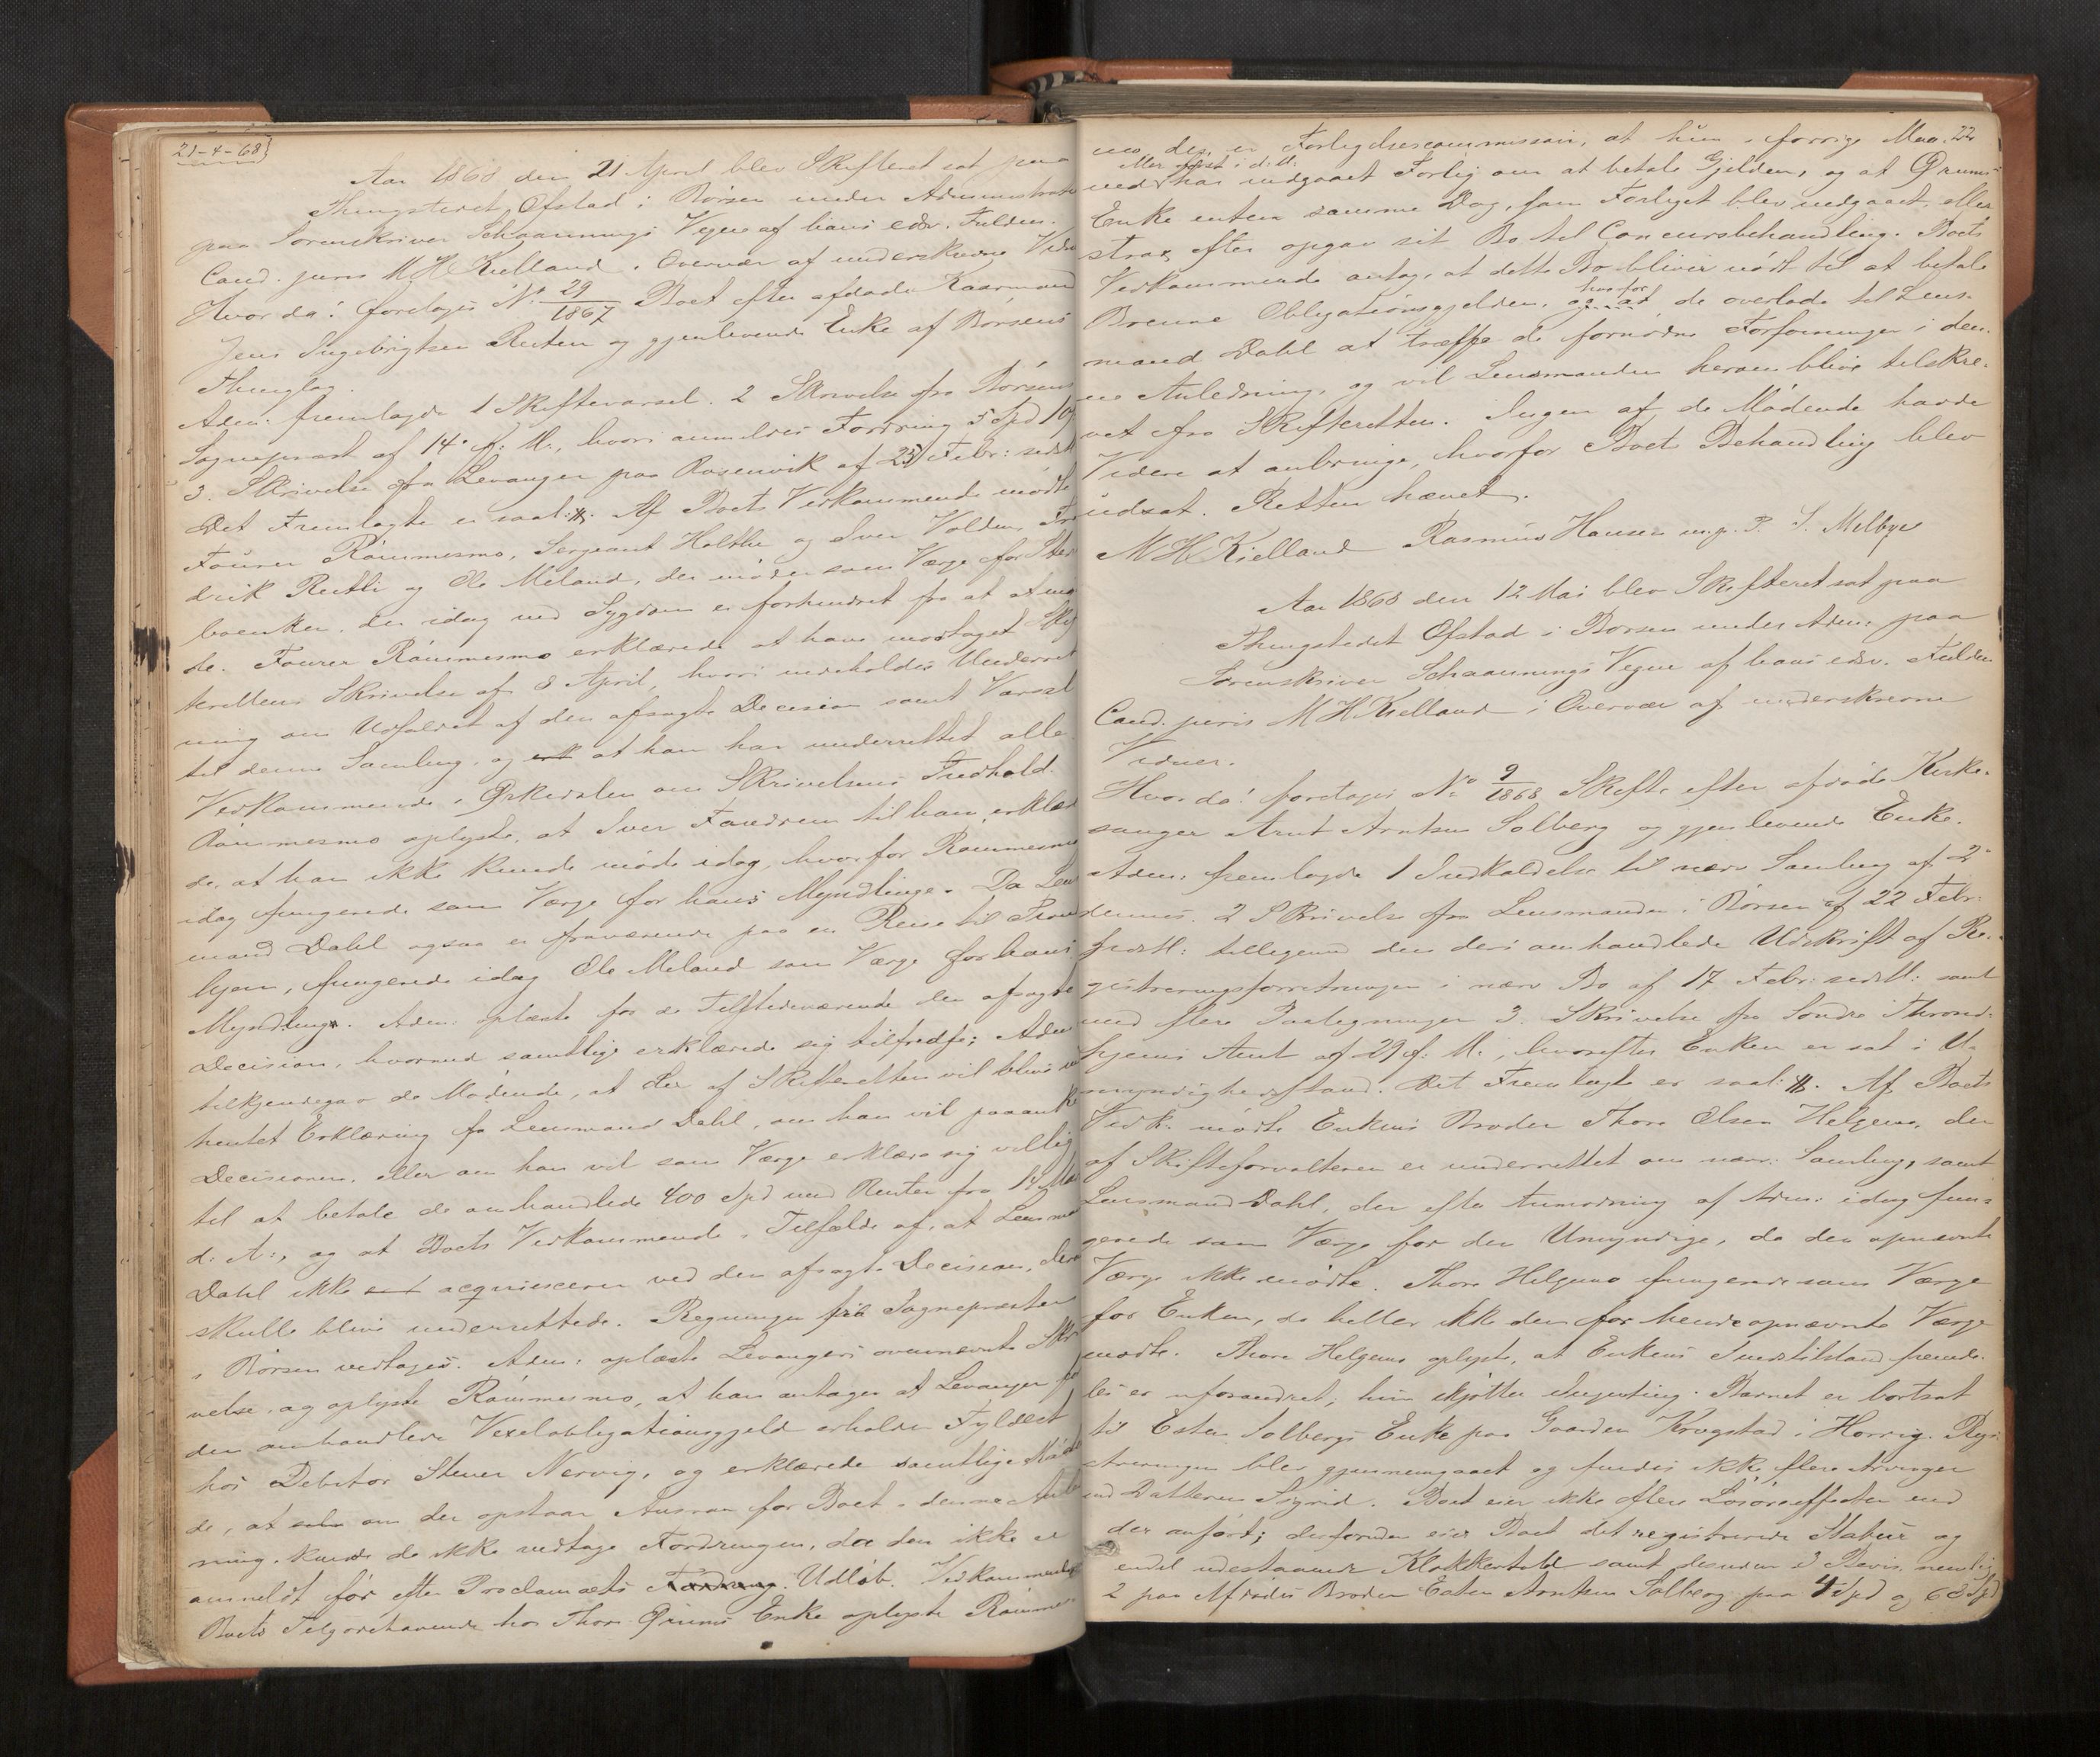 21-4-68
Aar 1868 den 21 April blev Skifteret sat paa
Thingstedet Ofstad i Börsen under Administrati
paa Sorenskriver Schaannings Vegne af hans edsv. Fuldm.
Cand. juris M H Kielland, Overvær af underskrevne Vidn
Hvor da: foretoges No 29/1867 Boet efter afdøde Kaarmand
Jens Ingebrigtsen Reiten og gjenlevende Enke af Börsens
Thinglag.
Adm. fremlagde 1 Skiftevarsel. 2 Skrivelse fra Börsens
Sognepræst af 14de f. M., hvori anmeldes Fordring 5 Spd 10
3. Skrivelse fra Levanger paa Rosenvik af 23 Febr: sidstl
Det Fremlagte er saal: #. Af Boets Vedkommende mödte
Fourer Rönnmesmo, Sergeant Holthe og Sven Volden, Fre
drik Reitli og Ole Meland, der möder som Værge for Ster
boenken, der idag ved Sygdom er forhindret fra at mø
de. Fourer Rönnmesmo erklærede at have modtaget Skif
terettens Skrivelse af 8 April, hvori indeholdes Underret
ning om Udfaldet af den afsagte Decision samt Varsel
til denne Samling, og at han har underrettet alle
Vedkommende i Ørkedalen om Skrivelsens Indhold.
Rönnmesmo oplyste, at Iver Fandrem til ham erklære
de, at han ikke kunde möde idag, hvorfor Rönnmesmo
idag fungerede som Værge for hans Myndlinge. Da Lens
mand Dahl ogsaa er fraværende paa en Reise til Tron
hjem, fungerede idag Ole Meland som Værge for hans
Myndling. Adm: oplæste for de Tilstedeværende den afsagte
Decision, hvormed samtlige erklærede sig tilfredse; Adm
tilkjendegav de Mødende, at der af Skifteretten vil blive ind
hentet Erklæring fra Lensmand Dahl, om han vil paaanke
Decisionen, eller om han vil som Værge erklære sig villig
til at betale de omhandlede 400 Spd med Renter fra 14 Mai
d. A:, og at Boets Vedkommende i Tilfælde af, at Lensmand
Dahl ikke acquiescerer ved den afsagte Decision, derom
skulle blive underrettede. Regningen fra Sognepræsten
i Börsen vedtoges. Adm: oplæste Levangers ovennævnte Skri
velse, og oplyste Rönnmesmo, at han antager at Levanger for
den omhandlede Vexelobligationsgjeld erholder Fyldest
hos Debitor Stener Nervig, og erklærede samtlige Møden
de, at om der opstaar Ansvar for Boet i denne Anled
ning, kunde de ikke vedtage Fordringen, da den ikke er
anmeldt för efter Proclamaets Udlöb. Vedkommende
Boets Tilgodehavende hos Thore Ørums Enke oplyste Rönnmes
22
mo, der er Forligelsescommissair, at hun i forrige Maa-
ned har indgaaet Forlig om at betale Gjelden, og at Ørums
Enke enten samme Dag, som Forliget blev indgaaet, eller
strax efter opgav sit Bo til Concursbehandling. Boets
Vedkommende antog, at dette Bo bliver nödt til at betale
Brenne Obligationsgjelden, hvorfor de overlode til Lens-
mand Dahl at træffe de fornødne Forføininger i den-
ne Anledning, og vil Lensmanden herom blive tilskre-
vet fra Skifteretten. Ingen af de Mødende havde
Videre at anbringe, hvorfor Boets Behandling blev
udsat. Retten hævet.
M H Kielland Rasmus Hansen m.p.P. S. Melbye
Aar 1868 den 12 Mai blev Skifteret sat paa
Thingstedet Ofstad i Borsen under Adm: paa
Sorenskriver Schaannings Vegne af hans edsv. Fuldm.
Cand. juris M H Kielland i Overvær af underskrevne
Vidner.
Hvor da: foretoges No 9/1868 Skifte efter afdöde Kirke-
sanger Arnt Arntsen Solberg og gjenlevende Enke.
Adm. fremlagde 1 Indkaldelse til nærv Samling af 2de
dennes. 2 Skrivelse fra Lensmanden i Börsen af 22 Febr:
sidstl: tilligemed den deri omhandlede Udskrift af Re-
gistreringsforretningen i nærv Bo af 17 Febr: sidstl: samt
med flere Paategninger 3. Skrivelse fra Söndre Thrond-
hjems Amt af 29 f. M., hvorefter Enken er sat i U-
myndighedsstand. Det Fremlagte er saal: #. Af Boets
Vedk. mödte Enkens Broder Thore Olsen Helgemo, der
af Skifteforvalteren er underrettet om nærv: Samling, samt
Lensmand Dahl, der efter Anmodning af Adm: idag fun-
gerede som Værge for den Umyndige, da den opnævnte
Værge ikke mödte. Thore Helgemo fungerede som Værge
for Enken, da heller ikke den for hende opnævnte Værge
mödte. Thore Helgemo oplyste, at Enkens Sindstilstand fremde-
les er uforandret; hun skjötter Ingenting. Barnet er bortsat
til Esten Solbergs Enke paa Gaarden Krogstad i Horrig. Regi-
streringen blev gjennemgaaet og fandtes ikke flere Arvinger
end Datteren Sigrid. Boet eier ikke flere Lösöreeffecter end
der anfört; desforuden eier Boet det registrerede Stabur og
endel udestaaende Klokkertold samt desuden 3 Bevis, nemlig
2 paa Afdødes Broder Esten Arntsen Solberg paa 4 Spd og 68 Spd